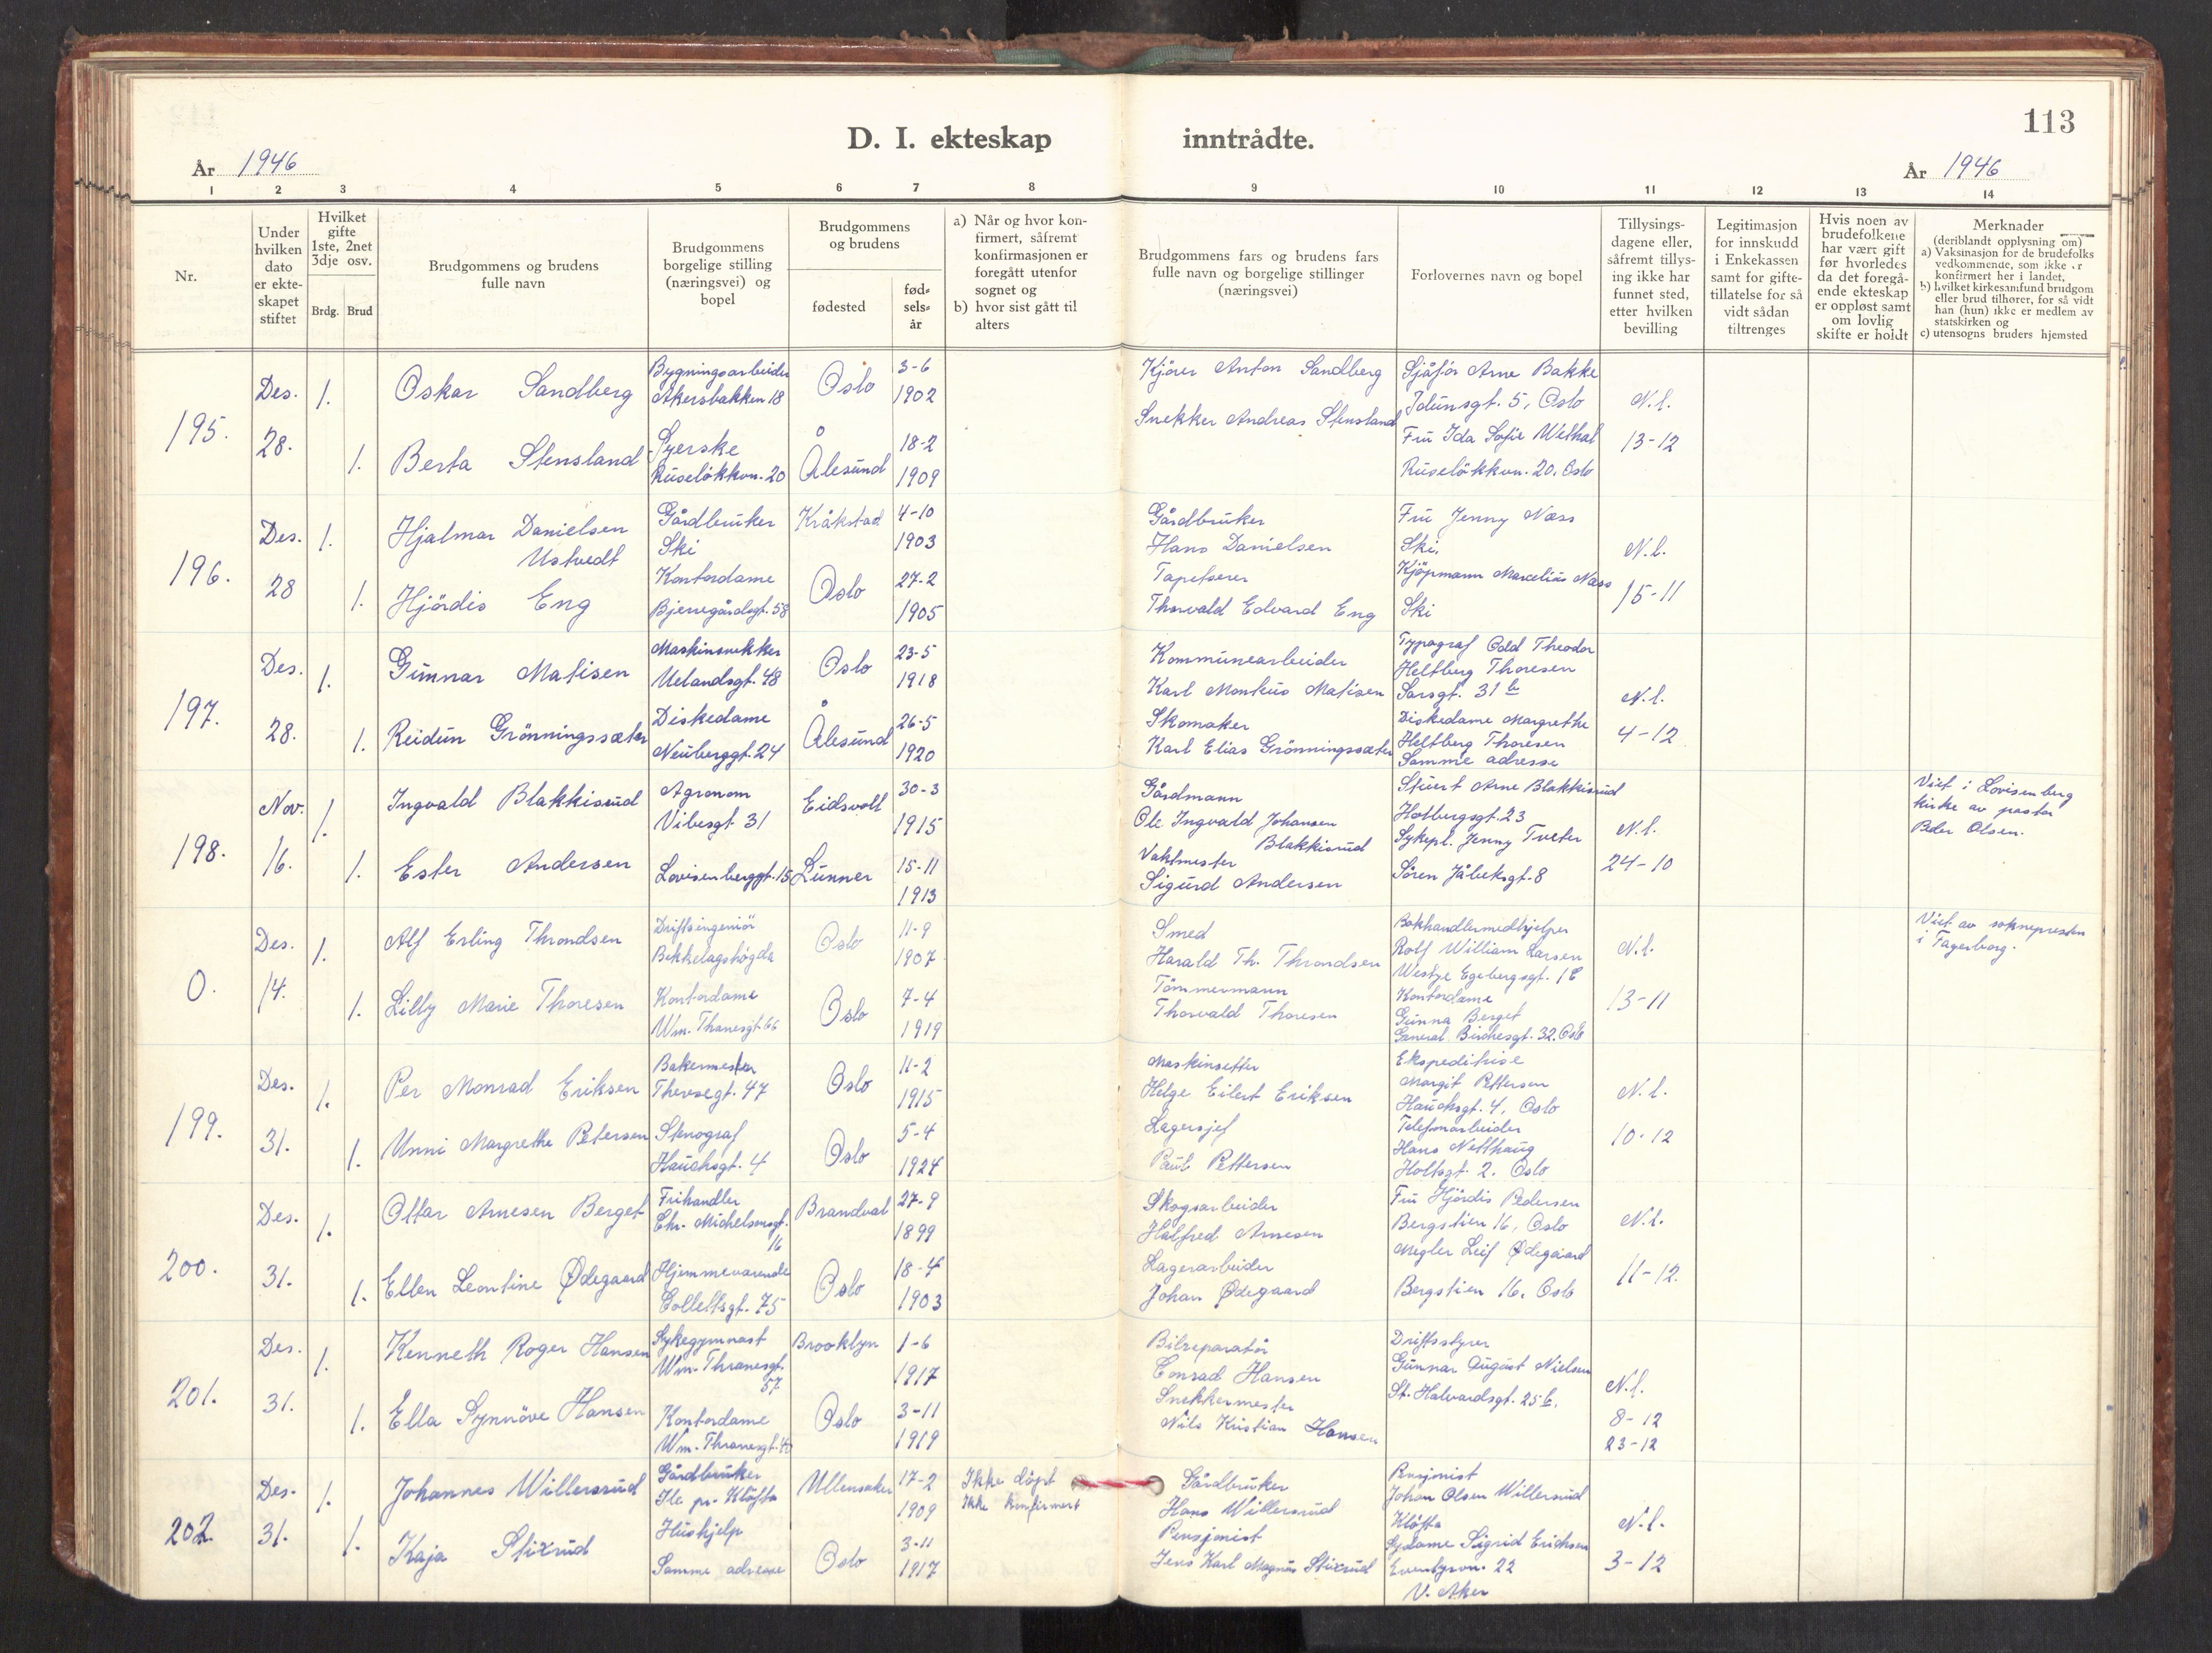 113
D. I. ekteskap inntrådte.
År 1946
År 1946
1 2 3 4 5 6 7 8 9 10 11 12 13 14
Nr.
Under
hvilken
dato
er ekte-
skapet
stiftet
Hvilket
gifte
1ste, 2net
3dje osv.
Brdg. Brud
Brudgommens og brudens
fulle navn
Brudgommens
borgelige stilling
(næringsvei) og
bopel
Brudgommens
og brudens
fødested
fød-
sels-
år
a) Når og hvor kon-
firmert, såfremt
konfirmasjonen er
foregått utenfor
sognet og
b) hvor sist gått til
alters
Brudgommens fars og brudens fars
fulle navn og borgelige stillinger
(næringsvei)
Forlovernes navn og bopel
Tillysings-
dagene eller,
såfremt tillys-
ing ikke har
funnet sted,
etter hvilken
bevilling
Legitimasjon
for innskudd
i Enkekassen
samt for gifte-
tillatelse for så
vidt sådan
tiltrenges
Hvis noen av
brudefolkene
har vært gift
før hvorledes
da det foregå-
ende ekteskap
er oppløst samt
om lovlig
skifte er holdt
Merknader
(deriblandt opplysning om)
a) Vaksinasjon for de brudefolks
vedkommende, som ikke er
konfirmert her i landet,
b) hvilket kirkesamfund brudgom
eller brud tilhører, for så vidt
han (hun) ikke er medlem av
statskirken og
c) utensogns bruders hjemsted
195.
Des.
28.
1.
Oskar Sandberg
Bygningsarbeider
Akersbakken 18
Oslo
3-6
1902
1.
Berta Stensland
Syerske
Ruseløkkvn. 20
Ålesund
18-2
1909
Kjører Anton Sandberg
Snekker Andreas Stensland
Sjåfør Arne Bakke
Idunsgt. 5, Oslo
Fru Ida Sofie Wethal
Ruseløkkvn. 20, Oslo
N.l.
13-12
196.
Des.
28
1.
Hjalmar Danielsen
Ustvedt
Gårdbruker
Ski
Kråkstad
4-10
1903
1.
Hjördis Eng
Kontordame
Bjerregårdsgt. 58
Oslo
27-2
1905
Gårdbruker
Hans Danielsen
Tapetserer
Thorvald Edvard Eng
Fru Jenny Næss
Ski.
Kjöpmann Marcelius Næss
Ski
N.l.
15-11
197.
Des.
28.
1.
Gunnar Matisen
Maskinsnekker
Uelandsgt. 48
Oslo
23-5
1918
1.
Reidun Grönningssæter
Diskedame
Neuberggt. 24
Ålesund
26-5
1920
Kommunearbeider
Karl Monkus Matisen
Skomaker
Karl Elias Grönningssæter
Typograf Odd Theodor
Heltberg Thoresen
Sarsgt. 31 b
Diskedame Margrethe
Heltberg Thoresen
Samme adresse
N.l.
4-12
198.
Nov.
16.
1.
Ingvald Blakkisrud
Agronom
Vibesgt 31
Eidsvoll
30-3
1915
1.
Ester Andersen
Lovisenberggt. 15
Lunner
15-11
1913
Gårdmann
Ole Ingvald Johansen
Blakkisrud
Vaktmester
Sigurd Andersen
Stuert Arne Blakkisrud
Holbergsgt. 23
Sykepl. Jenny Tveter
Sören Jåbeksgt. 8
N.l.
24-10
Viet i Lovisenberg
kirke av pastor
Peder Olsen.
0.
Des.
14.
1.
Alf Erling Throndsen
Driftsingeniör
Bekkelagshögda
Oslo
11-9
1907
1.
Lilly Marie Thoresen
Kontordame
Wm. Thranesgt. 66
Oslo
7-4
1919
Smed
Harald Th. Throndsen
Tömmermann
Thorvald Thoresen
Bokhandlermedhjelper
Rolf William Larsen
Westye Egebergsgt. 1 C
Kontordame
Gunna Berget
General Birchesgt. 32. Oslo
N.l.
13-11
Viet av sokneprester
i Fagerborg.
199.
Des.
31.
1.
Per Monrad Eriksen
Bakermester
Theresegt. 47
Oslo
11-2
1915
1.
Unni Margrethe Petersen
Stenograf
Hauchsgt. 4
Oslo
5-4
1924
Maskinsetter
Helge Eilert Eriksen
Lagersjef
Paul Pettersen
Ekspeditrise
Margit Pettersen
Hauchsgt. 4, Oslo
Telefonarbeider
Hans Netthaug
Holtsgt 2. Oslo
N.l.
10-12
200.
Des.
31.
1.
Ottar Arnesen Berget
Frihandler
Chr. Michelsensgt.
16
Brandval
27-9
1899
1.
Ellen Leontine Ødegaard
Hjemmeværende
Collettsgt. 75
Oslo
18-4
1903
Skogsarbeider
Halfred Arnesen
Lagerarbeider
Johan Ødegaard
Fru Hjördis Pedersen
Bergstien 16, Oslo
Megler Leif Ødegaard
Bergstien 16, Oslo
N.l.
11-12.
201.
Des.
31.
1.
Kenneth Roger Hansen
Sykegymnast
Wm. Thranesgt.
57
Brooklyn
1-6
1917
1.
Ella Synnöve Hansen
Kontordame
Wm. Thranesgt.
Oslo
3-11
1919
Bilreparatör
Conrad Hansen
Snekkermester
Nils Kristian Hansen
Driftsstyrer
Gunnar August Nielsen
St. Halvardsgt. 25 b.
N.l.
8-12
23-12
202.
Des.
31.
1.
Johannes Willersrud
Gårdbruker
Ile pr. Klöfta
Ullensaker
17-2
1909
Ikke döpt
Ikke konfirmert
1.
Kaja Stixrud
Hushjelp
Samme adresse
Oslo
3-11
1917
Gårdbruker
Hans Willersrud
Pensjonist
Jens Karl Magnus Stixrud
Pensjonist
Johan Olsen Willersrud
Klöfta
Sydame Sigrid Erichsen
Eventyrvn. 22
V. Aker
N.l.
3-12